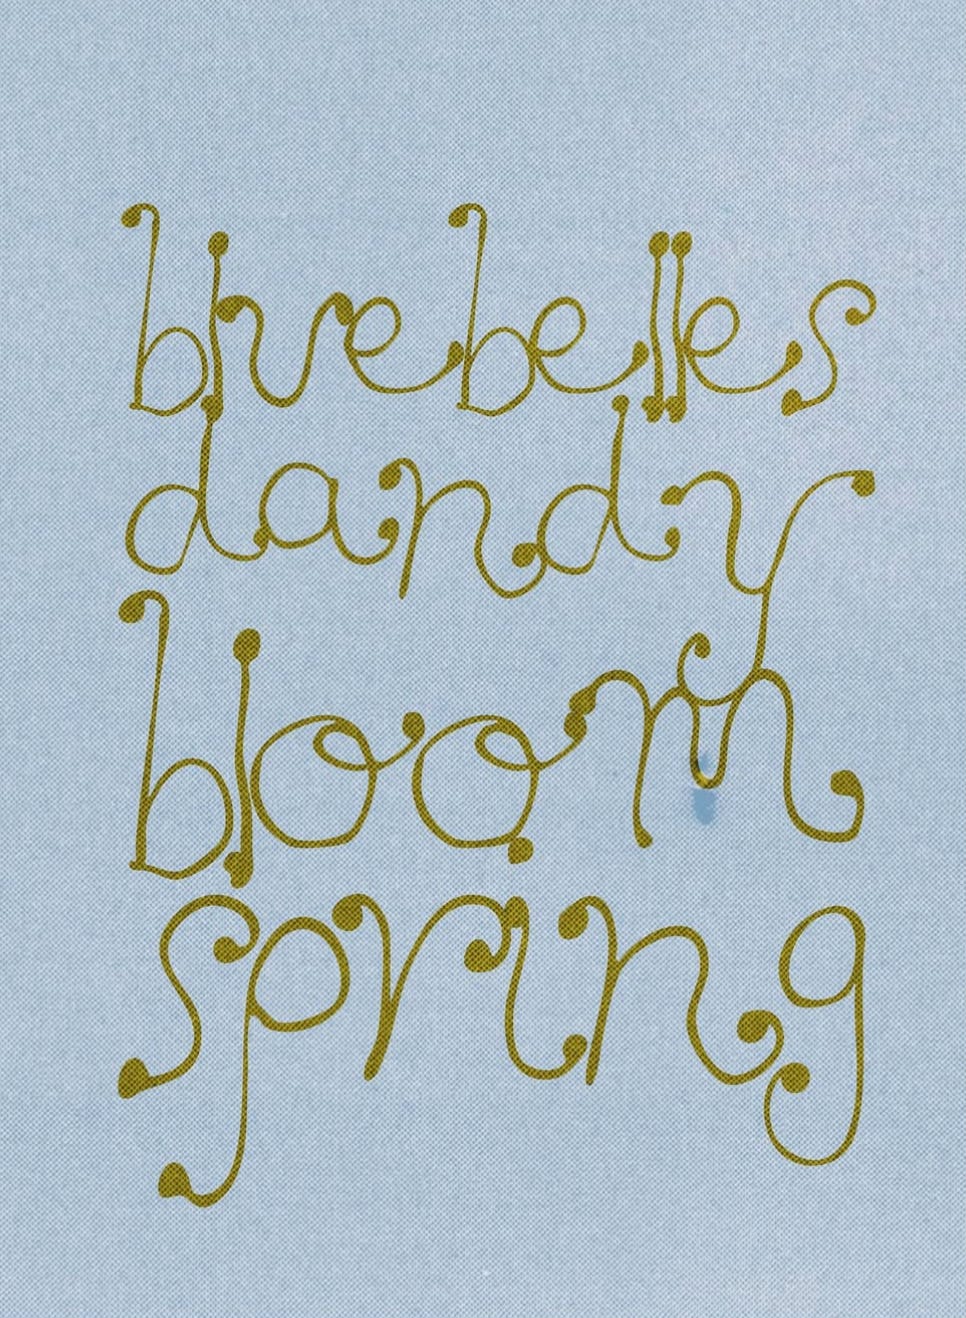 bluebelles
dandy
bloom
spring